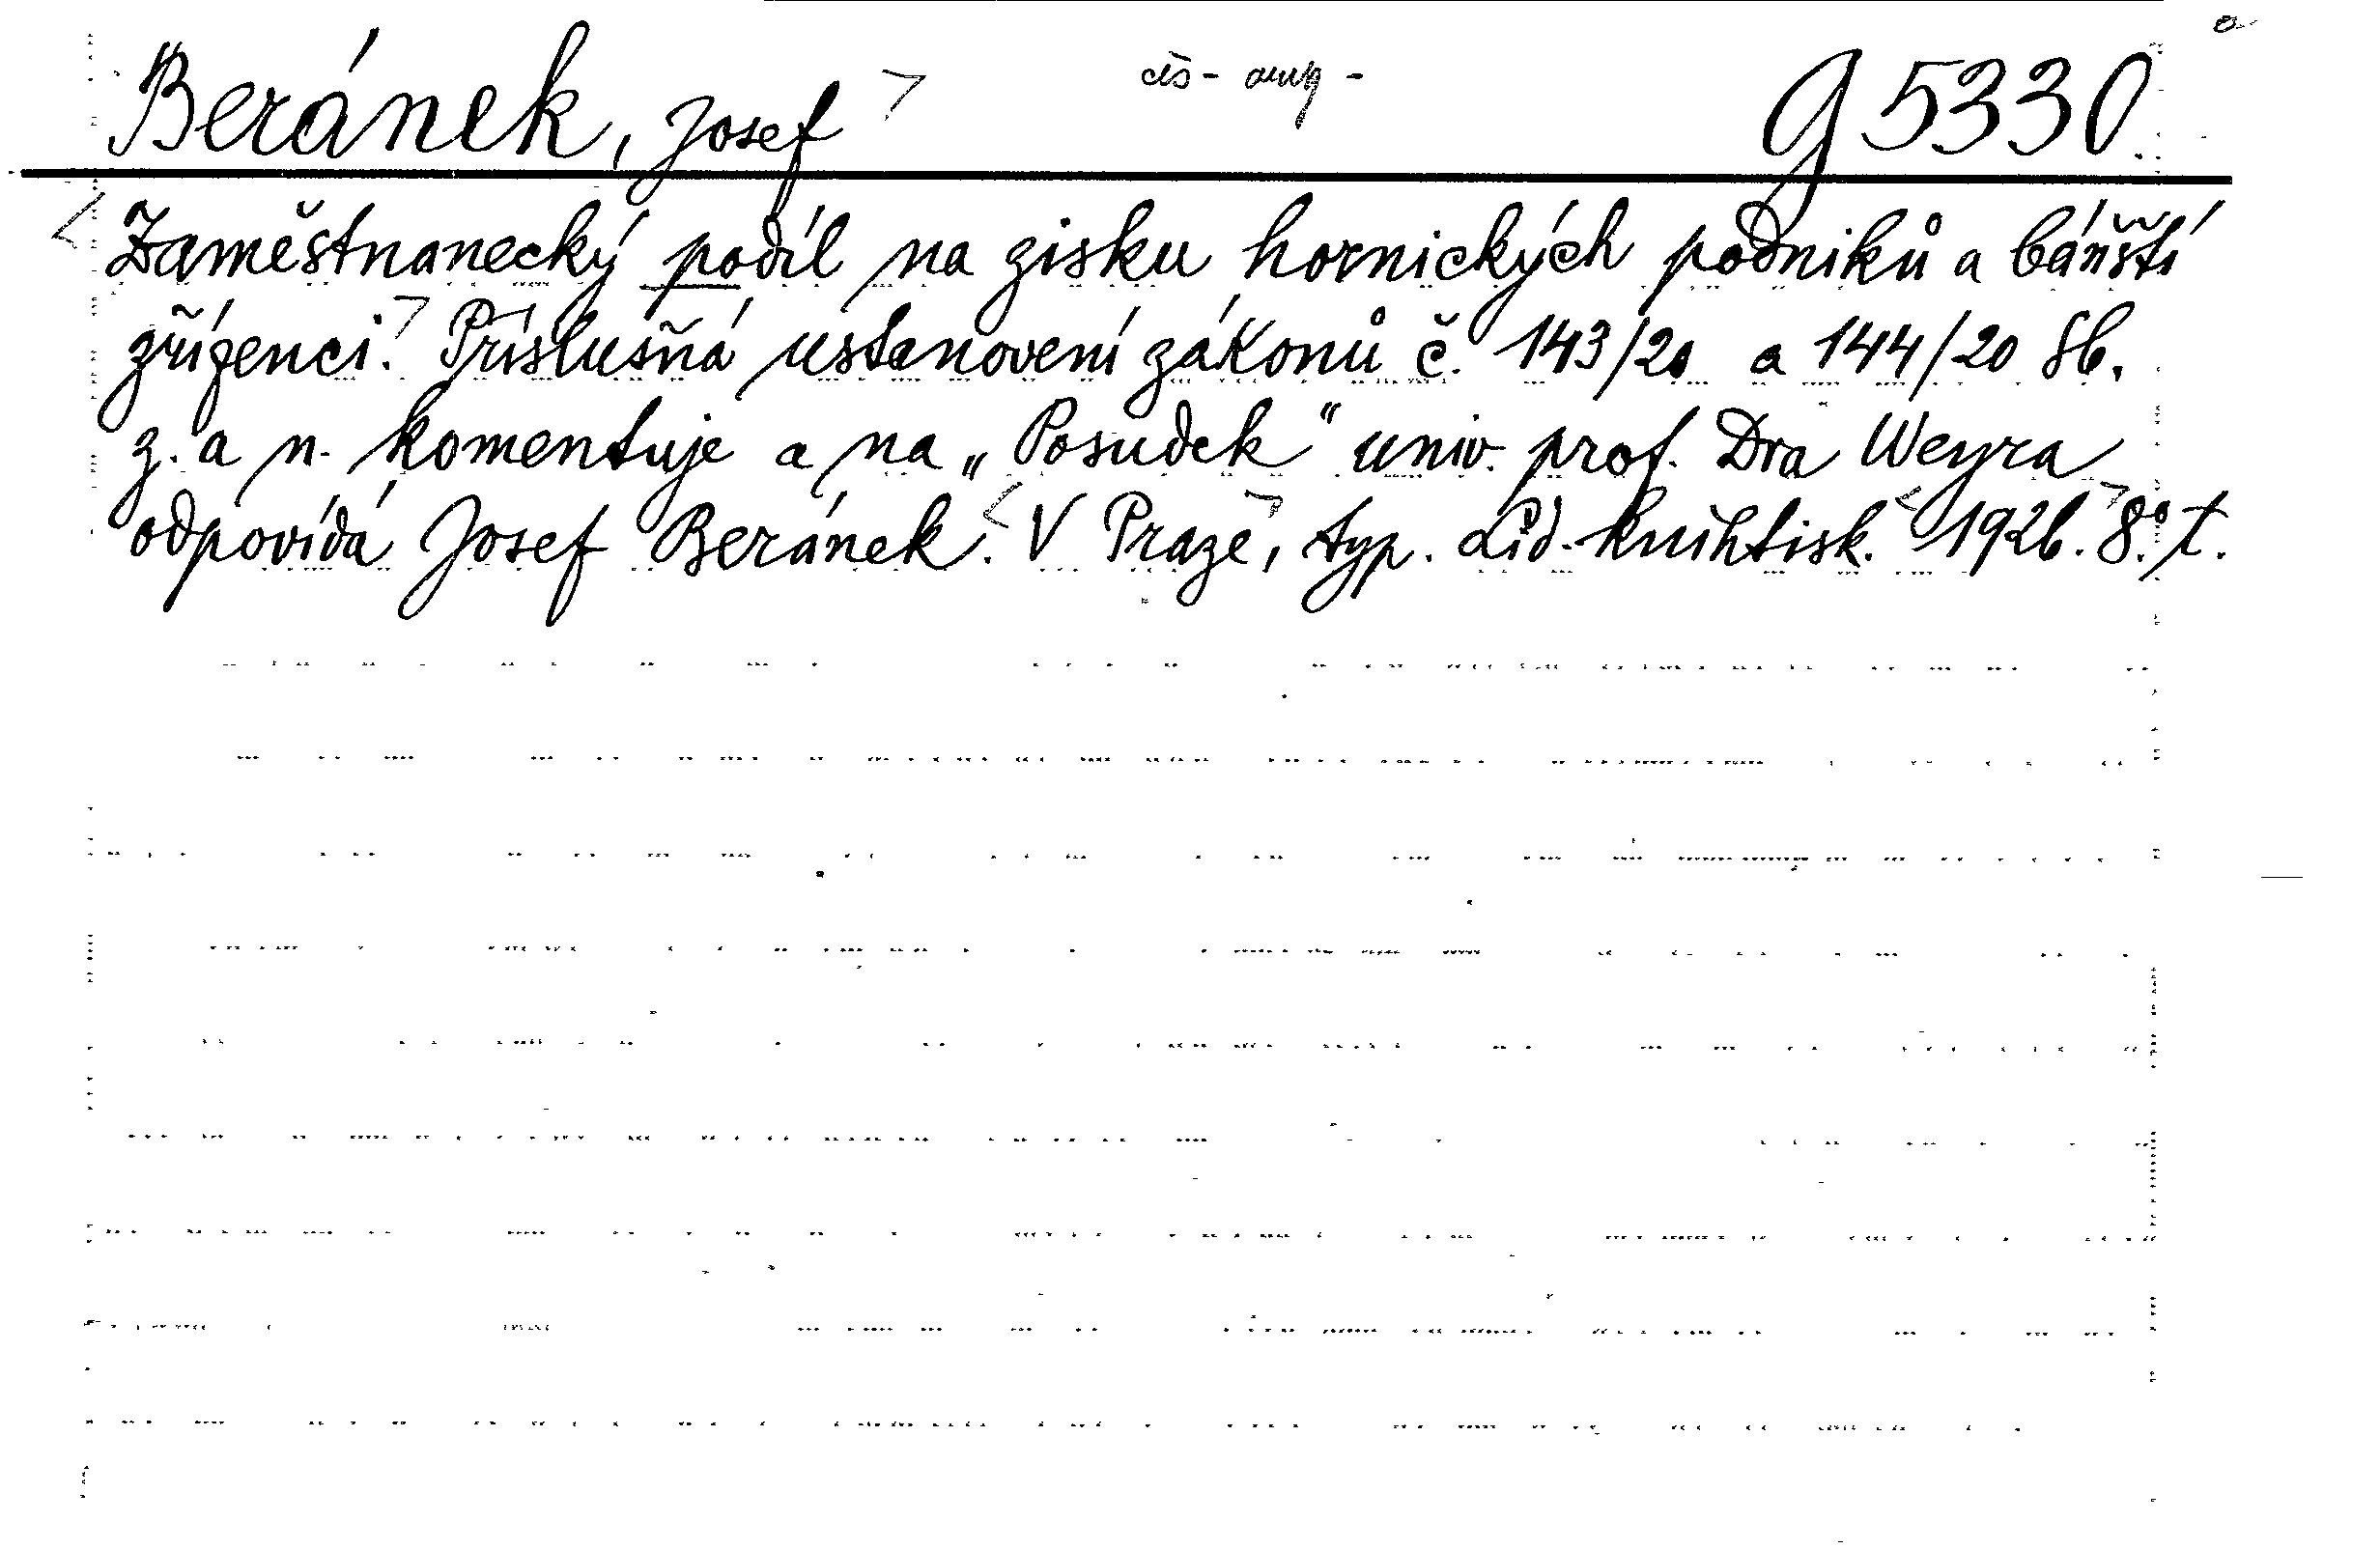 Beránek, Josef
G 5330
Zaměstnanecký podíl na zisku hornických podniků a báňští
zřízenci. Příslušná ustanovení zákonů č. 143/20 a 144/20 Sb.
z. a n. komentuje a na „Posudek“ univ. prof. Dra Weyra
odpovídá Josef Beránek. V Praze, typ. Lid. knihtisk. 1926. 8°. t.